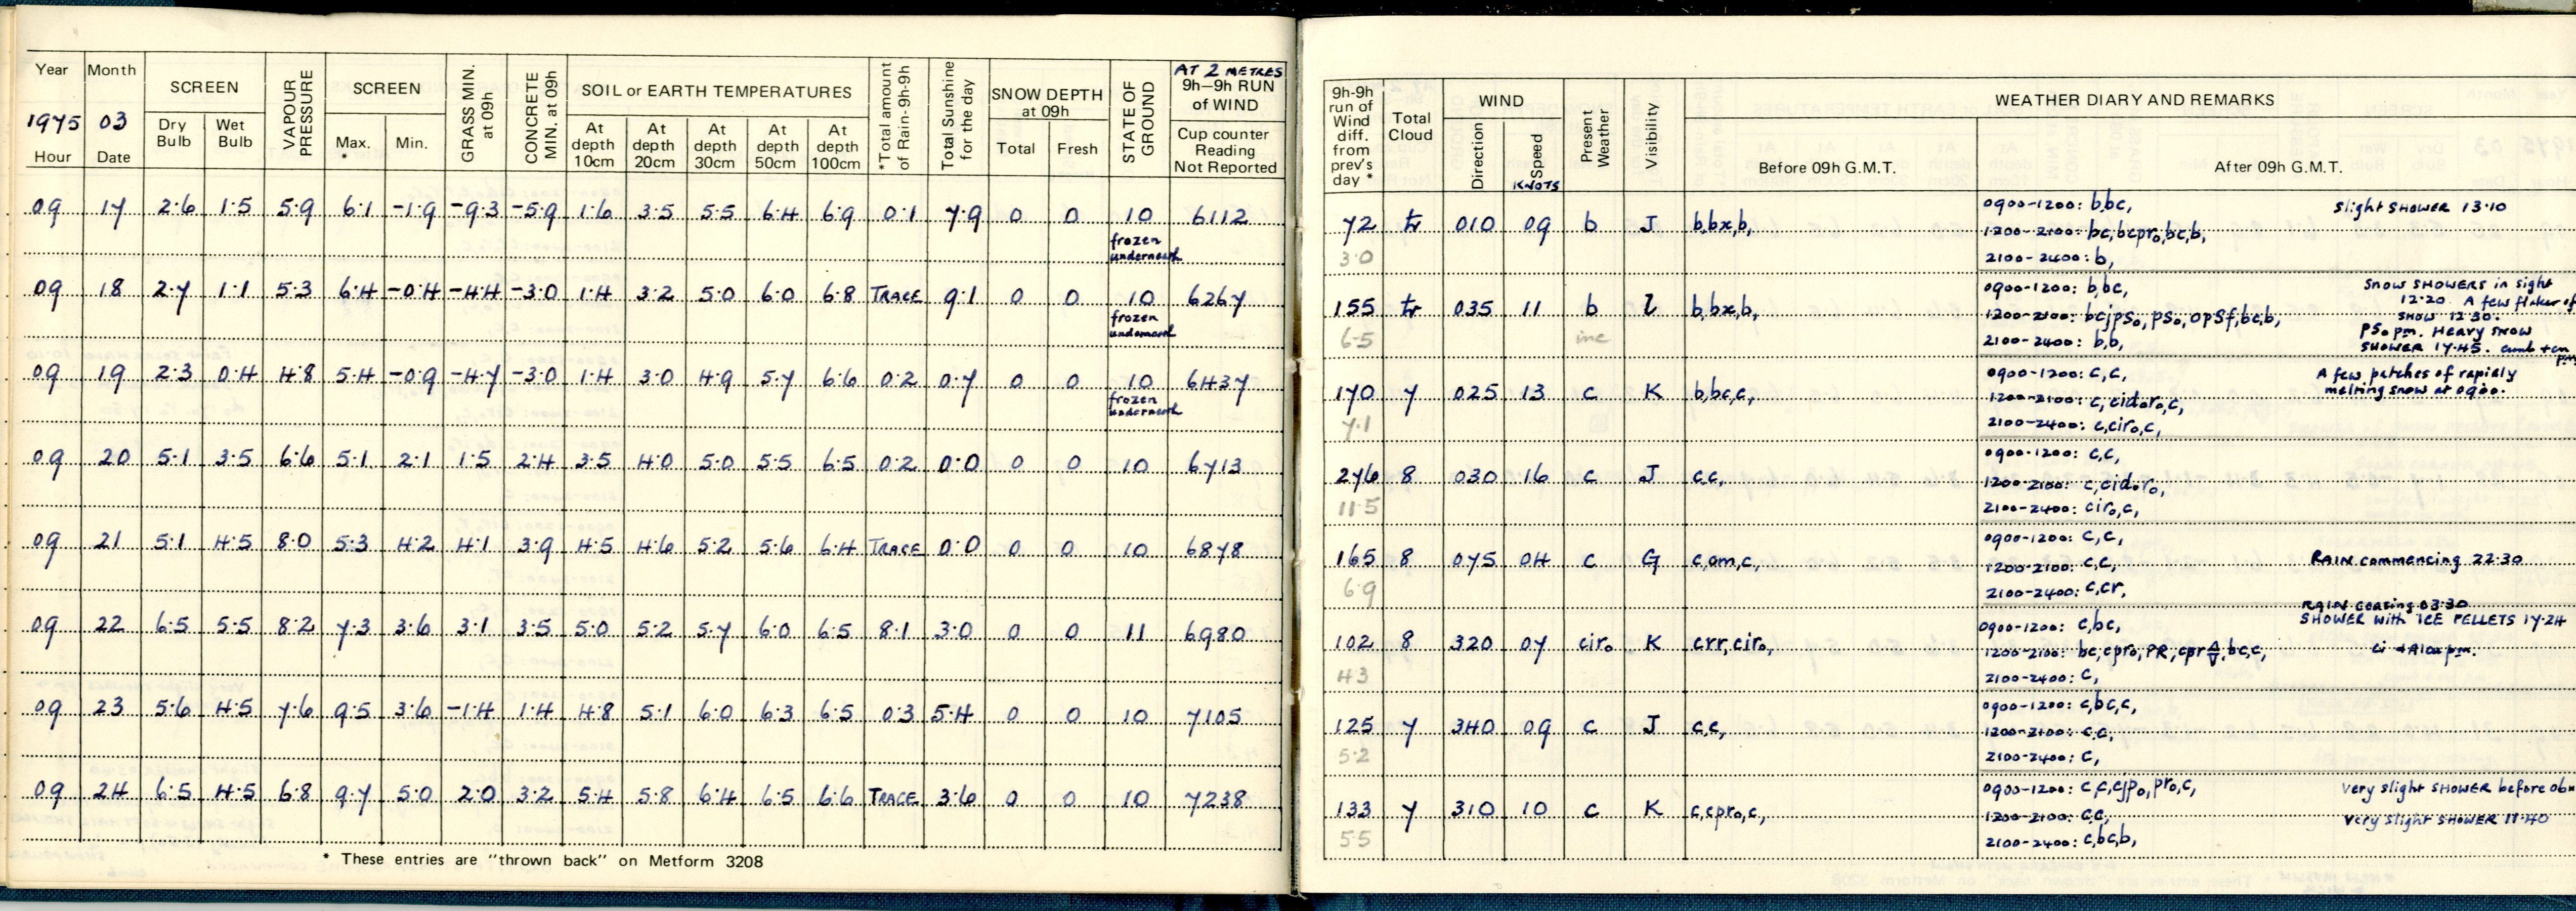 Year Month SCREEN VAPOUR PRESSURE SCREEN GRASS MIN. at 09h CONCRETE MIN. at 09h SOIL or EARTH TEMPERATURES *Total amount of Rain-9h-9h Total Sunshine for the day SNOW DEPTH at 09h STATE OF GROUND AT 2 METRES 9h—9h RUN of WIND
1975 03 Dry Bulb Wet Bulb Max. * Min. At depth 10cm At depth 20cm At depth 30cm At depth 50cm At depth 100cm Total Fresh Cup counter Reading Not Reported
Hour Date
09 17 2.6 1.5 5.9 6.1 -1.9 -9.3 -5.9 1.6 3.5 5.5 6.4 6.9 0.1 7.9 0 0 10 6112
frozen
underneath
09 18 2.7 1.1 5.3 6.4 -0.4 -4.4 -3.0 1.4 3.2 5.0 6.0 6.8 TRACE 9.1 0 0 10 6267
frozen
underneath
09 19 2.3 0.4 4.8 5.4 -0.9 -4.7 -3.0 1.4 3.0 4.9 5.7 6.6 0.2 0.7 0 0 10 6437
frozen
underneath
09 20 5.1 3.5 6.6 5.1 2.1 1.5 2.4 3.5 4.0 5.0 5.5 6.5 0.2 0.0 0 0 10 6713
09 21 5.1 4.5 8.0 5.3 4.2 4.1 3.9 4.5 4.6 5.2 5.6 6.4 TRACE 0.0 0 0 10 6878
09 22 6.5 5.5 8.2 7.3 3.6 3.1 3.5 5.0 5.2 5.7 6.0 6.5 8.1 3.0 0 0 11 6980
09 23 5.6 4.5 7.6 9.5 3.6 -1.4 1.4 4.8 5.1 6.0 6.3 6.5 0.3 5.4 0 0 10 7105
09 24 6.5 4.5 6.8 9.7 5.0 2.0 3.2 5.4 5.8 6.4 6.5 6.6 TRACE 3.6 0 0 10 7238
* These entries are "thrown back" on Metform 3208
9h-9h run of Wind diff. from prev's day * Total Cloud WIND Present Weather Visibility WEATHER DIARY AND REMARKS
Direction Speed KNOTS Before 09h G.M.T. After 09h G.M.T.
0900-1200: b,bc, Slight SHOWER 13.10
72 tr 010 09 b J b,bx,b, 1200-2100: bc,bcpro,bc,b,
3.0 2100-2400: b,
0900-1200: b,bc, SNOW SHOWERS in sight
12.20. A few flakes of
SNOW 12.30.
155 tr 035 11 b l b,bx,b, 1200-2100: bcjpso, pso, opSf,bc,b, pso pm. Heavy SNOW
6.5 2100-2400: b,b, SHOWER 17.45.
0900-1200: c,c, A few patches of rapidly
melting snow at 0900.
170 7 025 13 c K b,bc,c, 1200-2100: c,cidoro,c,
7.1 2100-2400: c,ciro,c,
0900-1200: c,c,
276 8 030 16 c J c,c, 1200-2100: c,cidoro,
11.5 2100-2400: ciro,c,
0900-1200: c,c,
165 8 075 04 c G c,om,c, 1200-2100: c,c, RAIN commencing 22.30
6.9 2100-2400: c,cr,
RAIN ceasing 03.30
0900-1200: c,bc, SHOWER with ICE PELLETS 17.24
102 8 320 07 ciro K crr,ciro, 1200-2100: bc,cpro,PR,cpr△,bc,c,
4.3 2100-2400: c,
0900-1200: c,bc,c,
125 7 340 09 c J c,c, 1200-2100: c,c,
5.2 2100-2400: c,
0900-1200: c,c,cjpo,pro,c, Very slight SHOWER before obs
133 7 310 10 c K c,cpro,c, 1200-2100: c,c, Very slight SHOWER 11.40
5.5 2100-2400: c,bc,b,